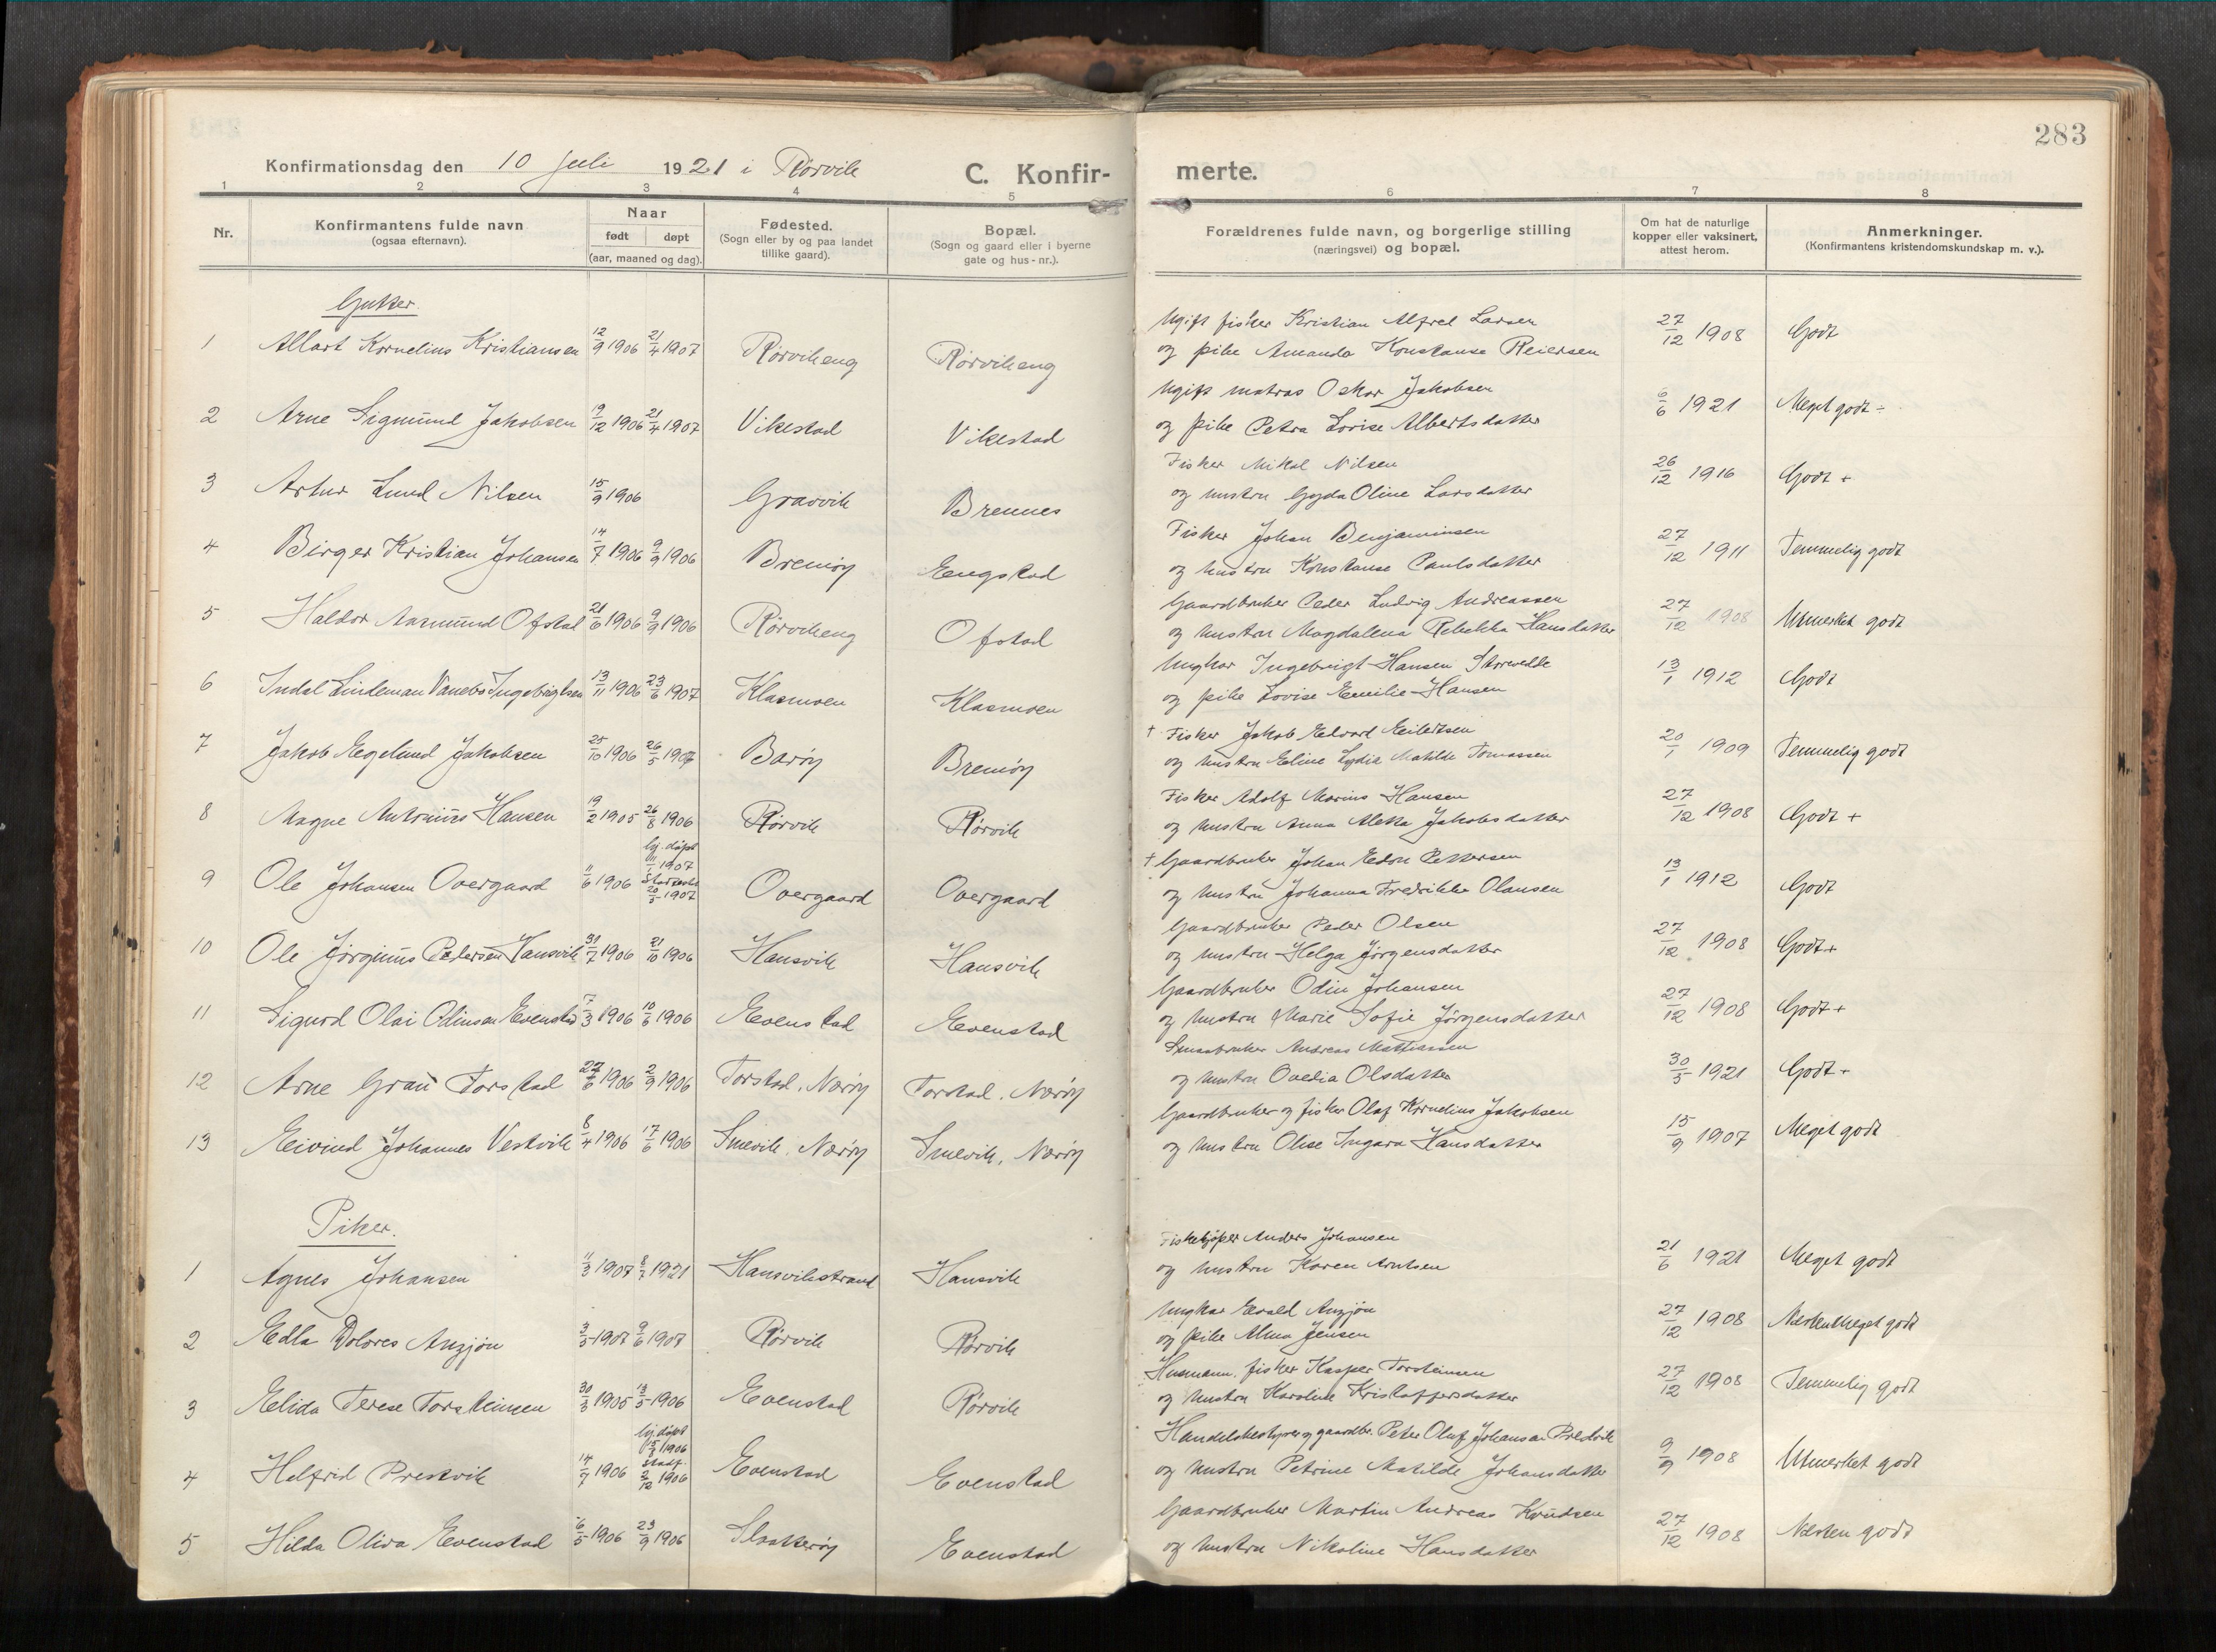 283
Konfirmationsdag den 10 Juli 1921 i Rørvik C. Konfir- merte.
1 2 3 4 5 6 7 8
Nr. Konfirmantens fulde navn (ogsaa efternavn). Naar født døpt (aar, maaned og dag). Fødested. (Sogn eller by og paa landet tillike gaard). Bopæl. (Sogn og gaard eller i byerne gate og hus-nr.). Forældrenes fulde navn, og borgerlige stilling (næringsvei) og bopæl. Om hat de naturlige kopper eller vaksinert, attest herom. Anmerkninger. (Konfirmantens kristendomskundskap m. v.).
Gutter.
1 Albart Kornelius Kristiansen 12/9 1906 21/4 1907 Rørvikeng Rørvikeng Ugift fisker Kristian Alfred Larsen 27/12 1908 Godt
og pike Amanda Konstanse Reiersen
2 Arne Sigmund Jakobsen 19/12 1906 21/4 1907 Vikestad Vikestad Ugift matros Oskar Jakobsen 6/6 1921 Meget godt ÷
og pike Petra Lovise Albertsdatter
3 Artur Lund Nilsen 15/9 1906 Gravvik Brennes Fisker Mikal Nilsen 26/12 1916 Godt +
og hustru Gyda Oline Larsdatter
4 Birger Kristian Johansen 14/7 1906 9/9 1906 Bremøy Engstad Fisker Johan Benjaminsen 27/12 1911 Temmelig godt
og hustru Konstanse Paulsdatter
5 Haldor Aasmund Ofstad 21/6 1906 9/9 1906 Rørvikeng Ofstad Gaardbruker Peder Ludvig Andreassen 27/12 1908 Utmerket godt
og hustru Magdalena Rebekka Hansdatter
6 Indal Lindeman Vanebo Ingebrigtsen 13/11 1906 23/6 1907 Klasmoen Klasmoen Ungkar Ingebrigt Hansen 13/1 1912 Godt
og pike Lovise Emilie Hansen
7 Jakob Engelund Jakobsen 25/10 1906 26/5 1907 Barøy Bremøy † Fisker Jakob Edvard Eilertsen 20/1 1909 Temmelig godt
og hustru Eline Lydia Matilde Tomassen
8 Magne Antonius Hansen 19/2 1905 26/8 1906 Rørvik Rørvik Fisker Adolf Marius Hansen 27/12 1908 Godt +
og hustru Anna Aletta Jakobsdatter
hj. døpt
9 Ole Johansen Overgaard 11/6 1906 11/1 1907 20/5 1907 Overgaard Overgaard † Gaardbruker Johan Edor Pettersen 13/1 1912 Godt
og hustru Johanna Fredrikke Olausen
10 Ole Jørginus Pedersen Hansvik 31/7 1906 21/10 1906 Hansvik Hansvik Gaardbruker Peder Olsen 27/12 1908 Godt +
og hustru Helga Jørgensdatter
11 Sigurd Olai Odinsen Evenstad 7/3 1906 10/6 1906 Evenstad Evenstad Gaardbruker Odin Johansen 27/12 1908 Godt +
og hustru Marie Sofie Jørgensdatter
12 Arne Grau Torstad 27/6 1906 2/9 1906 Torstad, Nærøy Torstad, Nærøy Smaabruker Andreas Mattiassen 30/5 1921 Godt ÷
og hustru Ovedia Olsdatter
13 Eivind Johannes Vestvik 8/4 1906 17/6 1906 Smevik, Nærøy Smevik, Nærøy Gaardbruker og fisker Olaf Kornelius Jakobsen 15/9 1907 Meget godt
og hustru Olise Ingara Hansdatter
Piker.
1 Agnes Johansen 11/3 1907 8/7 1921 Hansvikstrand Hansvik Fiskekjøper Anders Johansen 21/6 1921 Meget godt
og hustru Karen Arntsen
2 Edla Dolores Anzjøn 3/5 1907 9/6 1907 Rørvik Rørvik Ungkar Evald Anzjøn 27/12 1908 Næsten meget godt
og pike Alma Jensen
3 Elida Terese Torsteinsen 30/3 1905 13/5 1906 Evenstad Rørvik Husmann, fisker Kasper Torsteinsen 27/12 1908 Temmelig godt
og hustru Karoline Kristoffersdatter
hj. døpt
4 Halfrid Prestvik 14/7 1906 15/7 1906 stadf. 2/12 1906 Evenstad Evenstad Handelsbestyrer og gaardbr. Peter Oluf Johansen Prestvik 9/9 1908 Utmerket godt
og hustru Petrine Matilde Johansdatter
5 Hilda Oliva Evenstad 6/5 1906 23/9 1906 Slakterøy Evenstad Gaardbruker Martin Andreas Knudsen 27/12 1908 Næsten godt
og hustru Nikoline Hansdatter